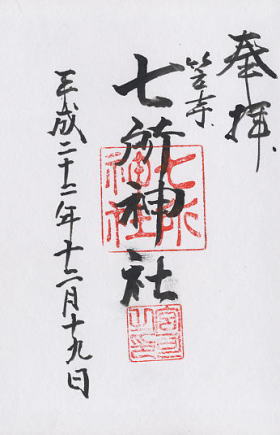 奉拝
笠寺
七所神社
平成二十二年十二月十九日
七所神社
宮司之印